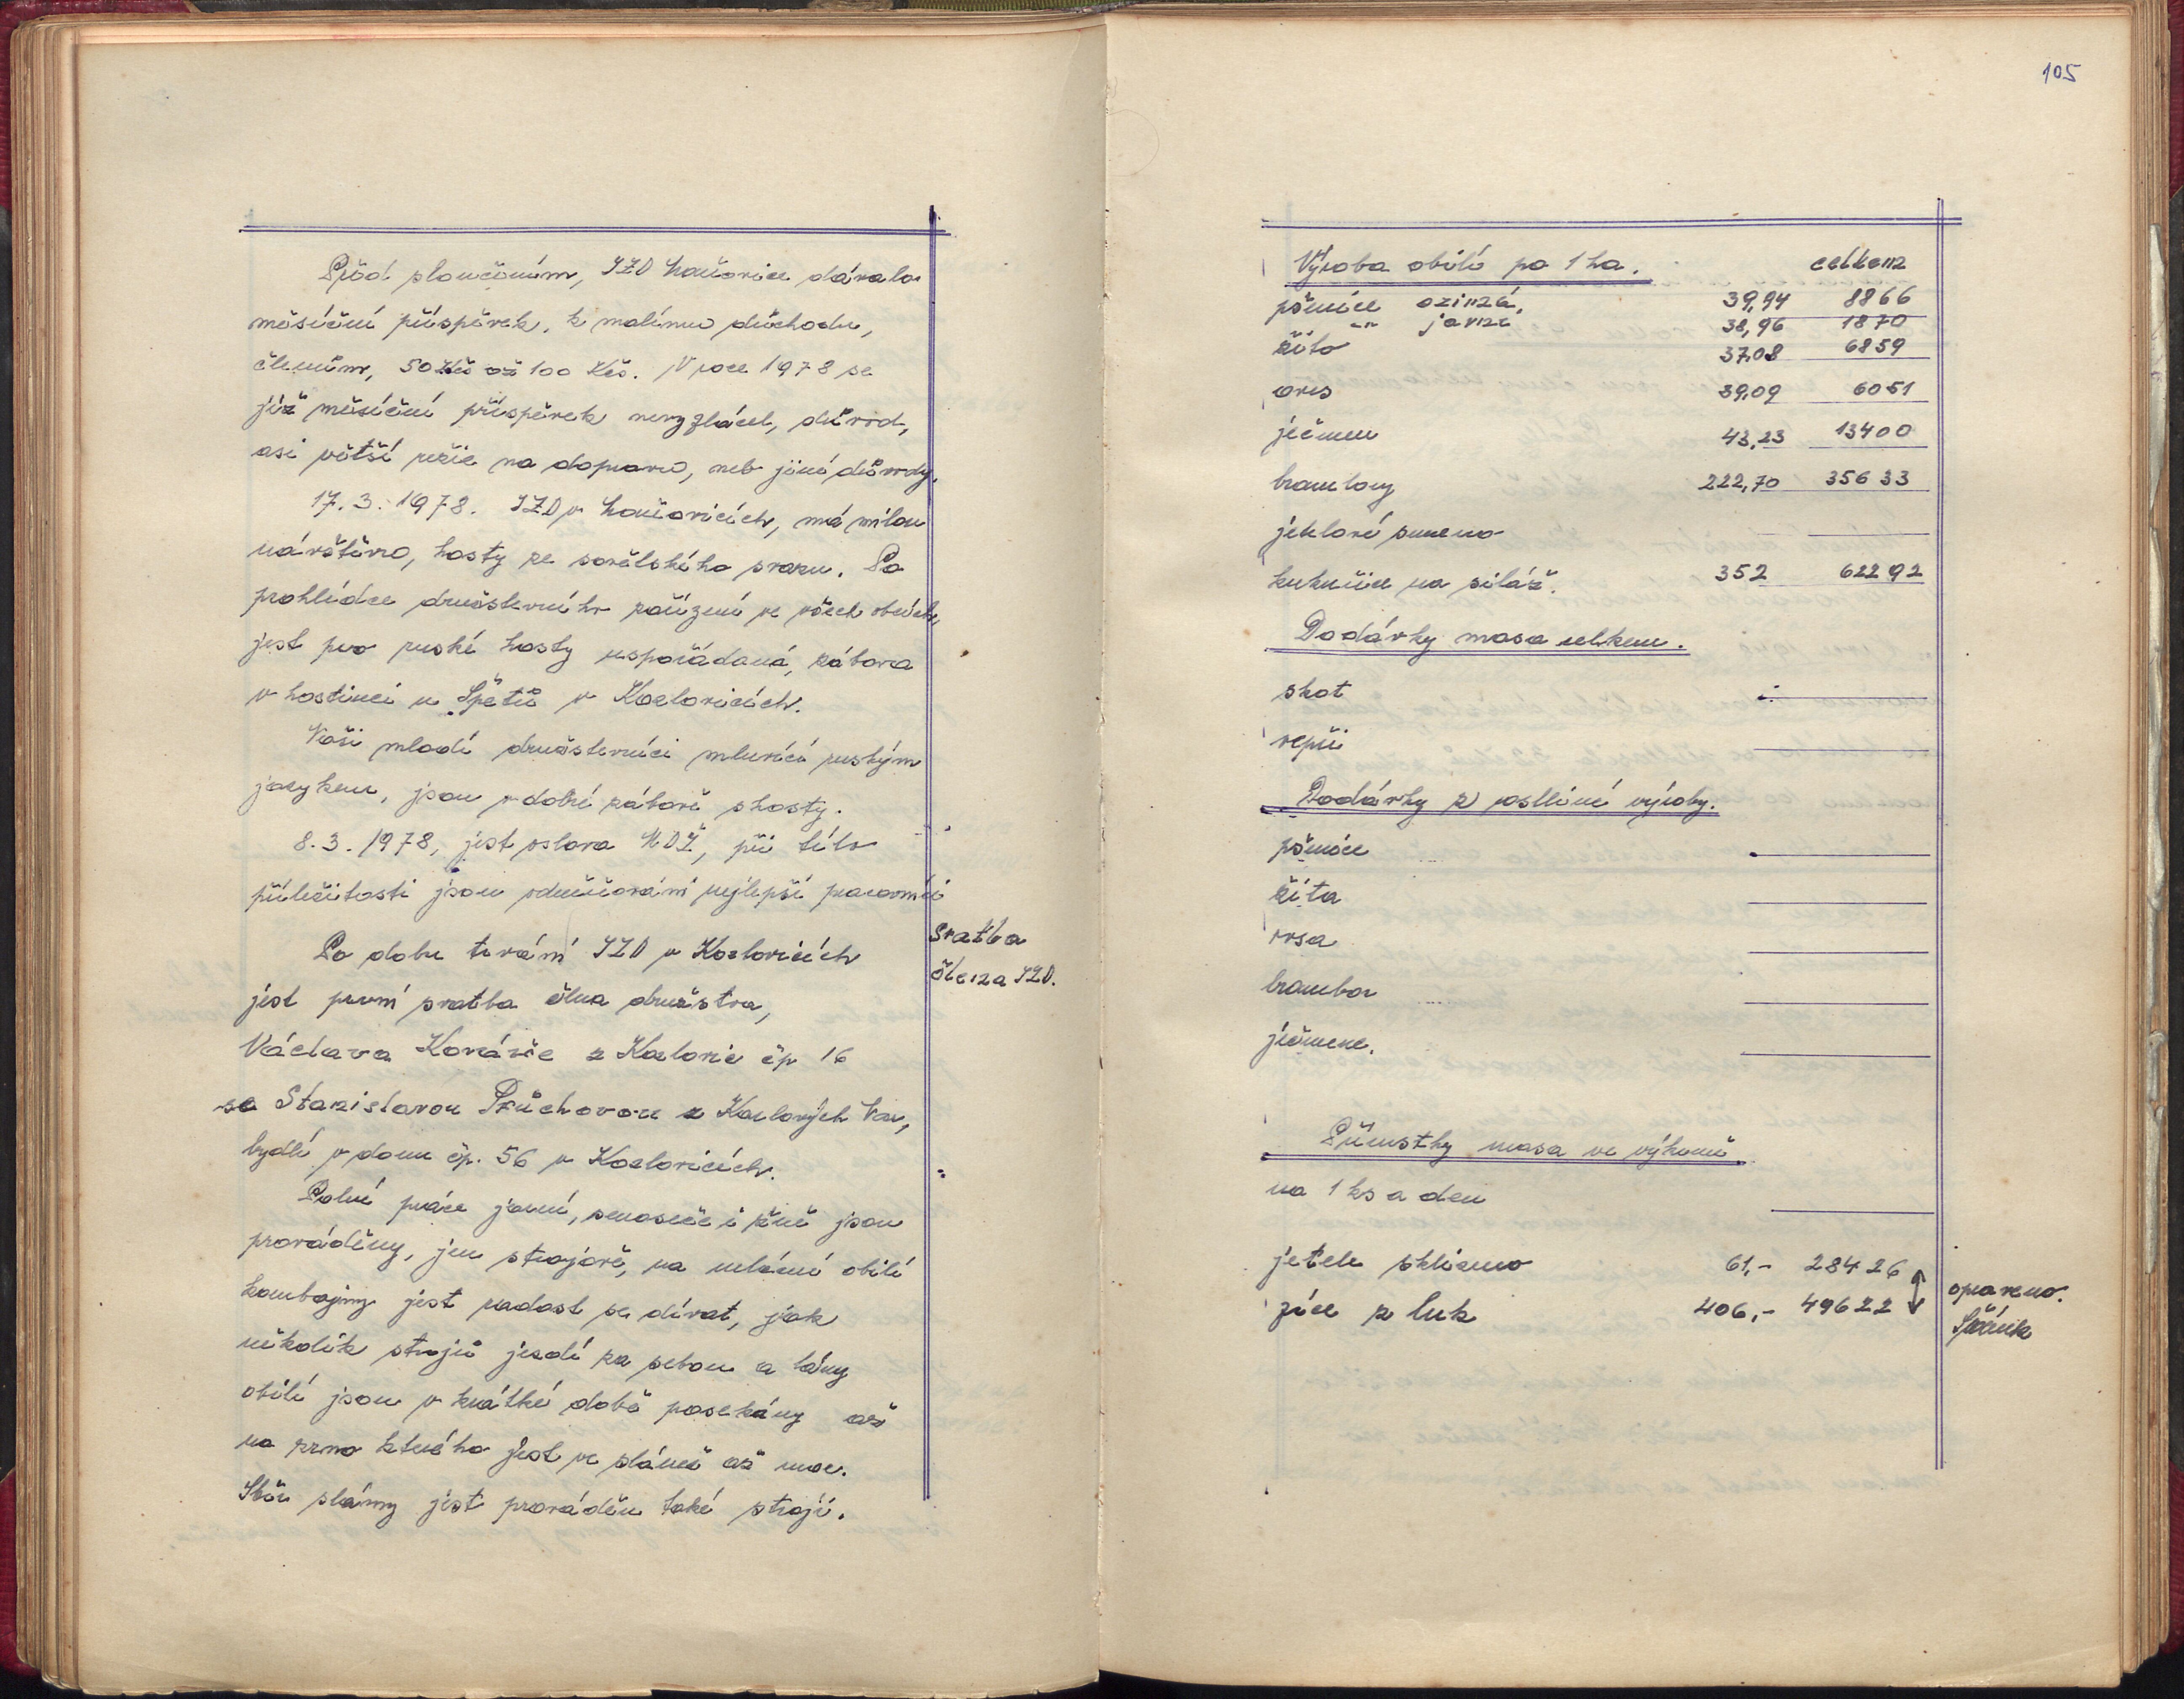 Před sloučením, JZD Hančovice dávalo
měsíční příspěvek, k malému důchodu,
členům, 50 Kčs až 100 Kčs. V roce 1978 se
již měsíční příspěvek nevyplácel, důvod,
asi větší režie na dopravu, neb jiné důvody.
17. 3. 1978. JZD v Hančovicích, má milou
návštěvu, hosty ze sovětského svazu. Po
prohlídce družstevního zařízení ve všech obcích,
jest pro ruské hosty uspořádaná, zábava
v hostinci u Špětů v Kozlovicích.
Naši mladí družstevníci mluvící ruským
jazykem, jsou v dobré zábavě s hosty.
8. 3. 1978, jest oslava MDŽ, při této
příležitosti jsou odměňováni nejlepší pracovníci
Po dobu trvání JZD v Kozlovicích
jest první svatba člena družstva,
Václava Kováře z Kozlovic čp 16
se Stanislavou Průchovou z Karlových Var,
bydlí v domu čp. 56 v Kozlovicích.
Polní práce jarní, senoseče i žně jsou
prováděny, jen strojově, na mlácení obilí
kombajny jest radost se dívat, jak
několik strojů jezdí za sebou a lány
obilí jsou v krátké době posekány až
na zrno kterého jest ve slámě až moc.
Sběr slámy jest prováděn také stroji.
svatba
člena JZD.
105
Výroba obilí po 1 ha. celkem
pšenice ozimá, 39,94 8866
-"- jarní 38,96 1870
žito 37,08 6859
oves 39,09 6051
ječmen 43,23 13400
brambory 222,70 35633
jetelové semeno
kukuřice na siláž. 352 62292
Dodávky masa celkem.
skot
vepři
Dodávky z rostlinné výroby.
pšenice
žita
ovsa
brambor
ječmene.
Přírustky masa ve výkrmě
na 1 ks a den
jetele sklizeno 61,- 28426
píce z luk 406,- 49622
opraveno.